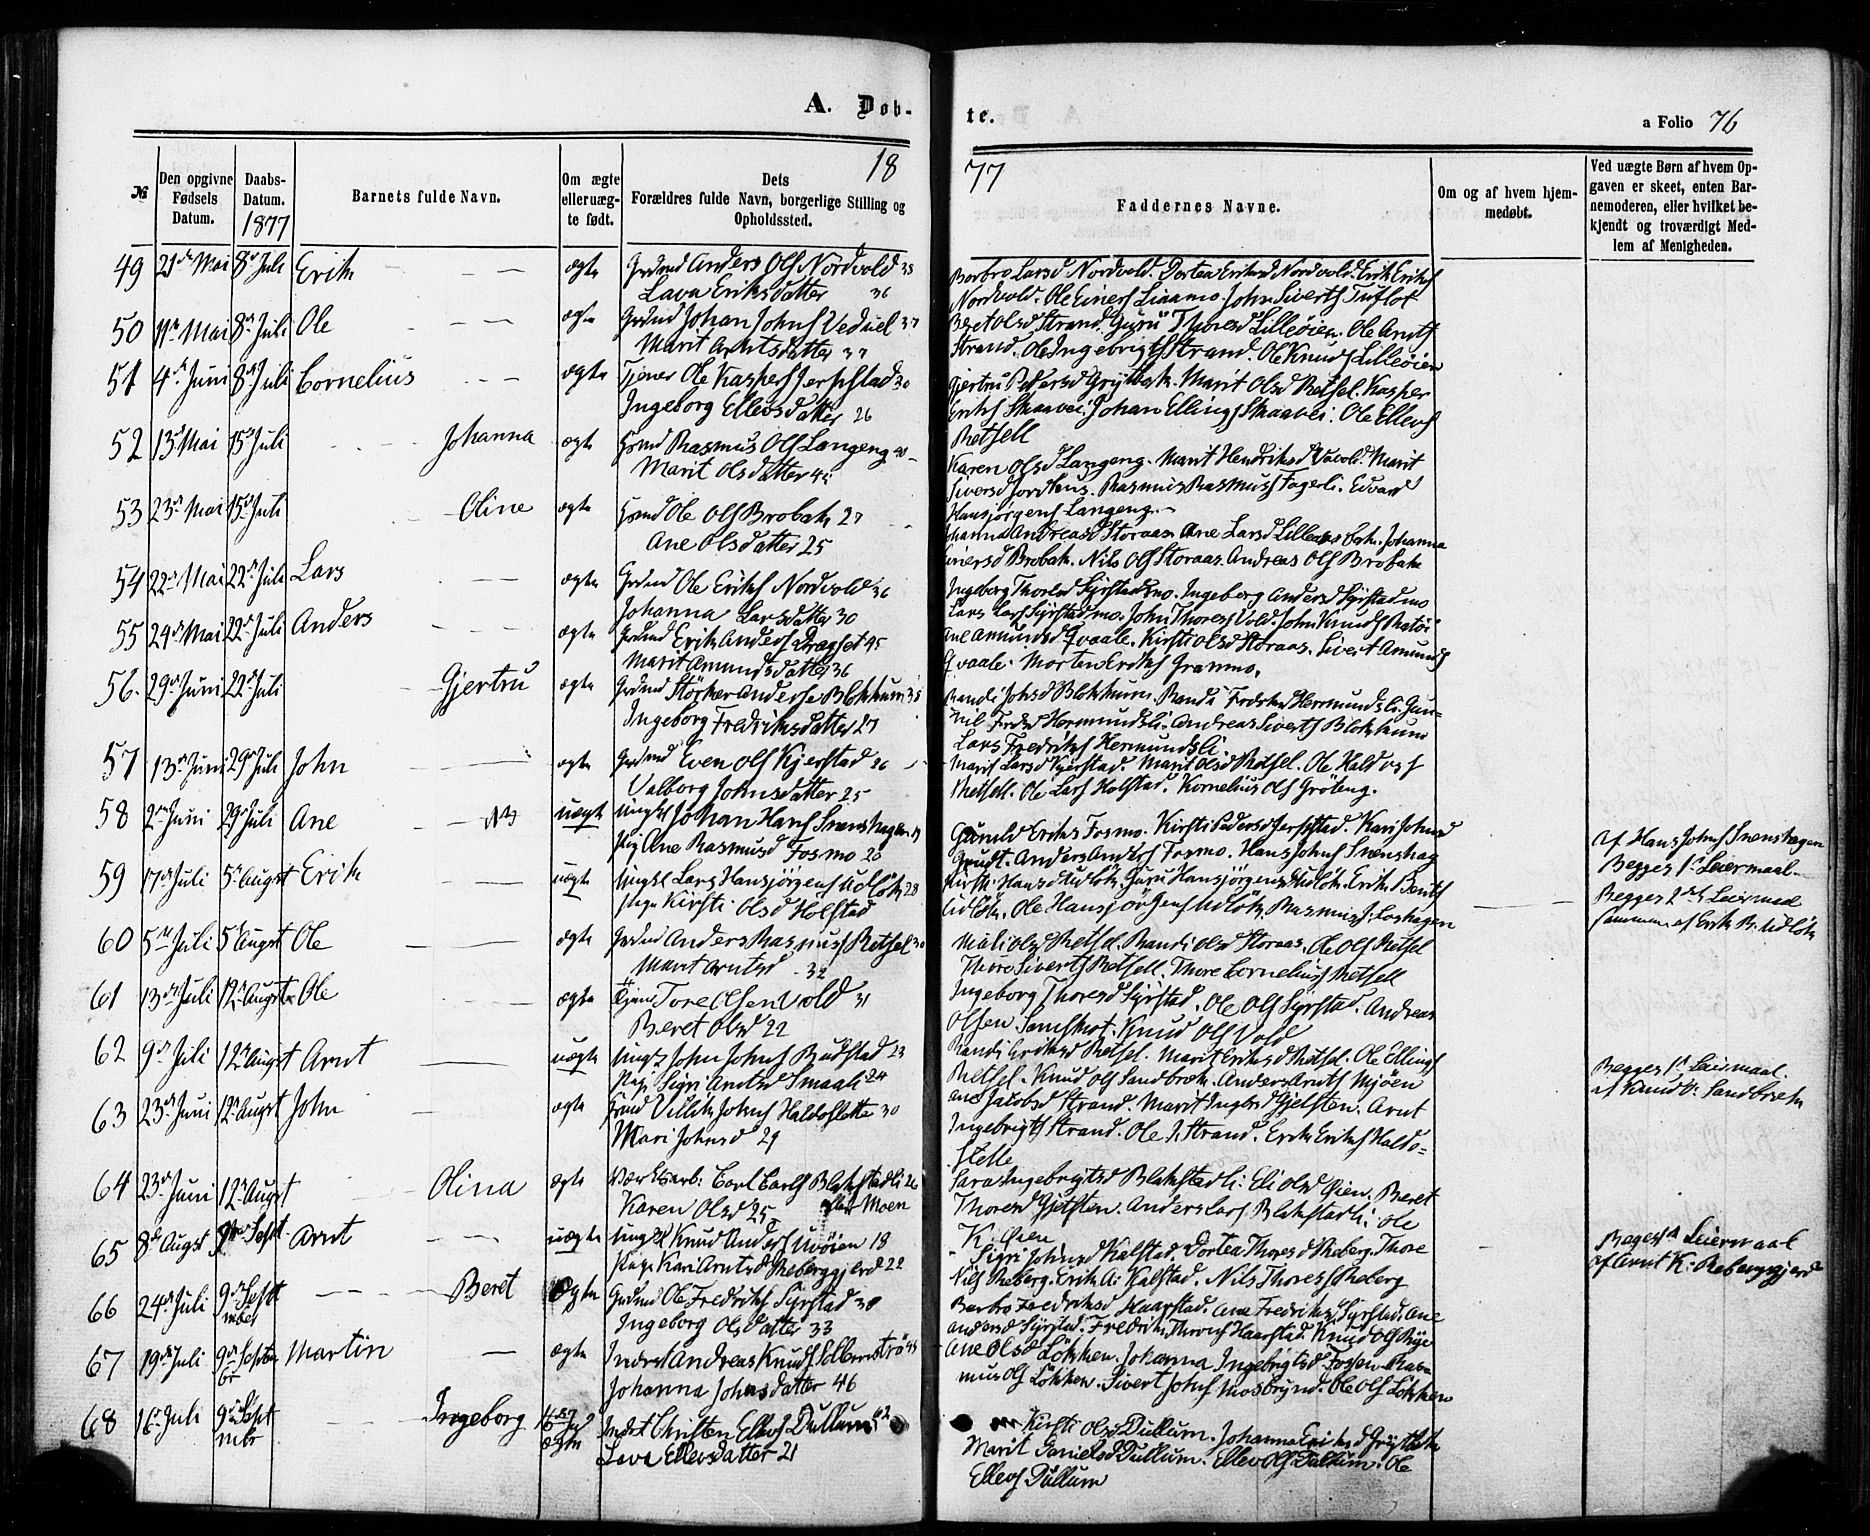 A. Døb-
te.
a Folio 76
18
77
№
Den opgivne Fødsels Datum.
Daabs-Datum.
1877
Barnets fulde Navn.
Om ægte eller uæg-te født.
Dets
Forældres fulde Navn, borgerlige Stilling og Opholdssted.
Faddernes Navne.
Om og af hvem hjem-medøbt.
Ved uægte Børn af hvem Op-gaven er skeet, enten Bar-nemoderen, eller hvilket be-kjendt og troværdigt Med-lem af Menigheden.
49 21de Mai 8de Juli Erik ægte Anders Olss Nordvold 33
Lava Eriksdatter 36
Barbro Larsd Nordvold. Dortea Eriksd Nordvold. Erik Eriks
Nordvold. Ole Einers Liaamo. John Siverts
50 11te Mai 8de Juli Ole ægte Johan Johns 37
Marit Arntsdatter 37
Beret Olsd Strand. Guru Thoresd Lilleøien. Ole Arnts
Strand. Ole Ingebrigts Strand. Ole Knuds Lilleøien
51 4de Juni 8de Juli Cornelius ægte Tjener Ole Kaspers Jerpstad 30
Ingeborg Ellevsdatter 26
Gjertru Pedersd Grytbak. Marit Olsd Retsel. Kasper
Eriks Skaavei. Johan Ellings Skaavei. Ole Ellevs
Retsell
52 13de Mai 15de Juli Johanna ægte Rasmus Ols Langeng 40
Marit Olsdatter
Karen Olsd Langeng. Marit Hendriksd Vavold. Marit
Siversd. Rasmus Rasmuss Fagerli. Edvard
Hansjørgens Langeng.
53 23de Mai 15de Juli Oline ægte Ole Ols Brobak 27
Ane Olsdatter 25
Johanna Andreasd Storaas. Ane Larsd. Johanna
Einersd Brobak. Nils Ols Storaas. Andreas Ols Brobak
54 22de Mai 22de Juli Lars ægte Ole Eriks Nordvold 36
Johanna Larsdatter 30
Ingeborg Thoresd Syrstadmo. Ingeborg Andersd Syrstadmo
Lars Lars Syrstadmo. John Thoress Vold. John Knuds
55 24de Mai 22de Juli Anders ægte Erik Anders Dragset 45
Marit Amundsdatter 36
Ane Amundsd Qvaale. Kirsti Olsd Storaas. Sivert Amunds
Qvaale. Morten Eriks Gramno.
56. 29de Juni 22de Juli Gjertru ægte Størker Anders Blokkum 35
Ingeborg Fredriksdatter 27
Randi Johsd Blokkum. Randi Fredriksd Hermundsli. Gun-
nil Fredsd Hermundsli. Andreas Siverts Blokkum
Lars Fredriks Hermundsli.
57 13de Juni 29de Juli John ægte Even Ols Kjerstad 26
Valborg Johnsdatter 25
Marit Larsd Kjerstad. Marit Olsd Retsel. Ole Haldos
Retsell. Ole Lars Holstad. Kornelius Ols Grøteng.
58 2den Juni 29de Juli Ane uægt Ungkl Johan Hans Svenshagen
Pig Ane Rasmusd Fosmo 20
Gunild Eriks Fosmo. Kirsti Pedersd Jerpstad. Kari Johnsd
Grudt. Anders Anders Fosmo. Hans Johns Svenshag
Af Hans Johns Svenshagen
Begges 1ste Leiermaal
59 17de Juli 5te Augst Erik uægte Ungkl Lars Hansjörgens Udlök 28
Pige Kirsti Olsd Holstad
Kirsti Hansd Udlök. Guru Hansjörgensd Udlök. Erik Bents
Udlök. Ole Hansjörgens Udlök. Rasmus J. Loshagen
Begges 2det Leiermaal
sammen af Erik B. Udlök
60 5te Juli 5te Augst Ole ægte Anders Rasmuss Retsel 30
Marit Arntsd 32
Mali Olsd Retsel. Randi Olsd Storaas. Ole Ols Retsel
Thore Siverts Retsell. Thore Corneliuss Retsell
61 13de Juli 12te Augst Ole ægte Tjener Tore Olsen Vold 31
Beret Olsd 22
Ingeborg Thoresd Syrstad. Ole Ols Syrstad. Andreas
Olsen. Knud Ols Vold
62 9de Juli 12te Augst Arnt uægte Ungkl John Johns Rudstad 23
Pige Sigri Arntsd Smaali 24
Randi Eriksd Retsel. Marit Eriksd Retsel. Ole Ellings
Retsel. Knud Ols Sandbræk. Anders Arnts Mjøen
Begges 1ste Leiermaal.
af Knud O: Sandbræk
63 23de Juni 12te Augst John ægte Villik Johns Haldoslette 30
Mari Johnsd 29
Ane Jacobsd Strand. Marit Ingebr Gjelsten. Arnt
Ingebrigts Strand. Ole I. Strand. Erik Eriks Haldo-
slette
64 23de Juni 12te Augst Olina ægte Værksarb: Carl Carls Blakstadli 26
Karen Olsd 25 Moen
Sara Ingebrigtsd Blakstadli. Eli Olsd Øien. Beret
Thoresd Gjelsten. Anders Lars Blakstadli. Ole
K: Øien
65 8de Augst 9de Sept Arnt uægte Ungkl Knud Anders Uvøien 18
Pige Kari Arntsd Reberggjerd 22
Sigri Johnsd Kalstad. Dortea Thoresd Reberg. Thore
Nils Reberg. Erik A: Kalstad. Nils Thores Reberg
Begges 1ste Leiermaal
af Arnt K: Reberggjerd
66 24de Juli 9de Sept-mber Beret ægte Ole Fredriks Syrstad 38
Ingeborg Olsdatter 33
Barbro Fredriksd Haarstad. Ane Fredriksd Syrstad. Ane
Andersd Syrstad. Fredrik Thores Haarstad. Knud Ols Rye
67 19de Juli 9de Septem-br Martin ægte Inderst Andreas Knuds
Johanna Johnsdatter 46
Ane Olsd Løkken. Johanna Ingebrigtsd Fossen. Ras-
mus Ols Løkken. Sivert Johns Mosbrynd. Ole Ols Løkken
68 16de Juli 9de Sept-mbr Ingeborg ægte Inderst Christen Ellevs Dullum
Lava Ellevsdatter 21
Kirsti Olsd Dullum. Johanna Eriksd
Marit Danielsd Dullum. Ellev Ols Dullum. Ole
Ellevs Dullum